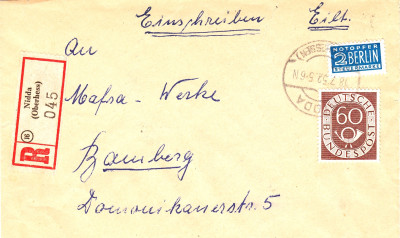 Einschreiben Eilt.
An
Mafra-Werke
Bamberg
Domonikanerstr. 5
Nidda
(Oberhess)
045
R
NOTOPFER
2 BERLIN
STEUERMARKE
DEUTSCHE
60
BUNDESPOST
NIDDA
7.52.5-6N